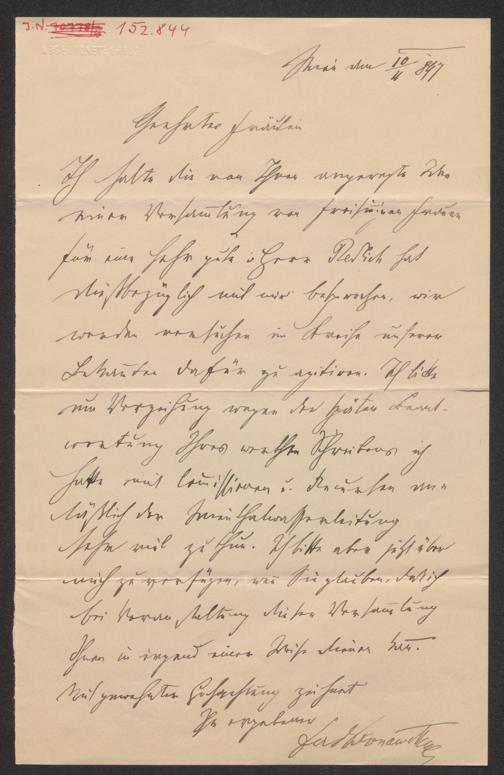 J.N. 152.844
Wien den 10/4 897
Geehrtes Fräulein
Ich halte die von Ihnen angeregte Idee
einer Versammlung von freisinnigen Frauen
für eine sehr gute; Herr Redlich hat
diesbezüglich mit mir besprochen, wir
werden versuchen im Kreise unserer
Bekannten dafür zu agitiren. Ich bitte
um Verzeihung wegen der späten Beant-
wortung Ihres werthen Schreibens ich
hatte mit Comissionen u. Recursen an-
läßlich der Wienthalwasserleitung
sehr viel zu thun. Ich bitte aber jetzt über
mich zu verfügen, wenn Sie glauben, daß ich
bei Veranstaltung dieser Versammlung
Ihnen in irgend einer Weise dienen kann.
Mit gewohnter Hochachtung zeichnet
Ihr ergebener
Ferd